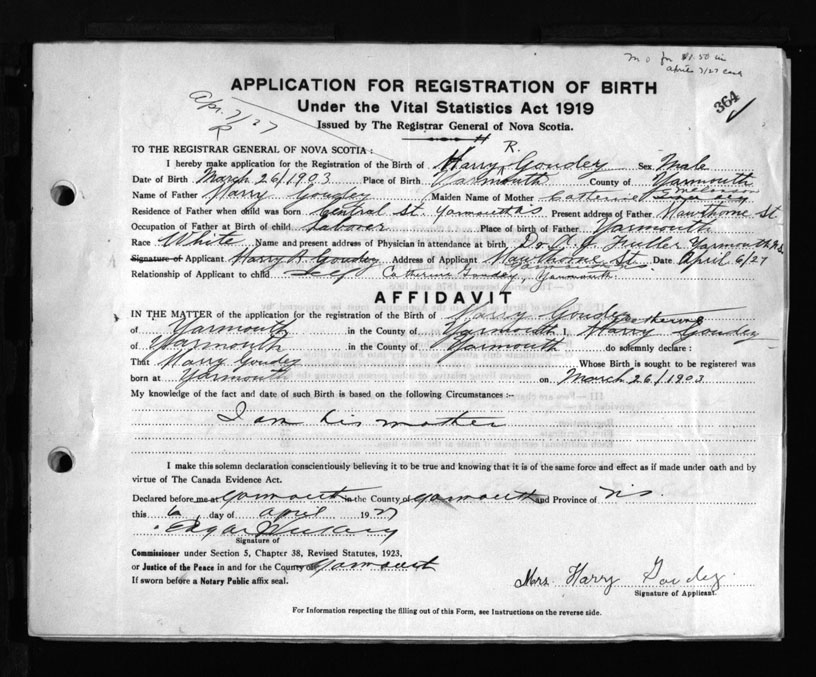 M O for $1.50 in
April 7/27 cash
APPLICATION FOR REGISTRATION OF BIRTH
364
Apr. 7/27
R
Under the Vital Statistics Act 1919
Issued by The Registrar General of Nova Scotia.
TO THE REGISTRAR GENERAL OF NOVA SCOTIA :
R.
I hereby make application for the Registration of the Birth of Harry Goudey Sex Male
Date of Birth March 26/1903 Place of Birth Yarmouth County of Yarmouth
Name of Father Harry Goudey Maiden Name of Mother Catherine
Residence of Father when child was born Central St. Yarmouth N.S. Present address of Father Hawthorne St
Occupation of Father at Birth of child Laborer Place of birth of Father Yarmouth
Race White Name and present address of Physician in attendance at birth Dr. Fuller Yarmouth N.S.
Signature of Applicant Harry A Goudey Address of Applicant Hawthorne St. Date April 6/27
Relationship of Applicant to child Self Catherine Goudey, Yarmouth
AFFIDAVIT
IN THE MATTER of the application for the registration of the Birth of Harry Goudey
of Yarmouth in the County of Yarmouth I, Catherine Harry Goudey
of Yarmouth in the County of Yarmouth do solemnly declare :
That Harry Goudey Whose Birth is sought to be registered was
born at Yarmouth on March 26/1903
My knowledge of the fact and date of such Birth is based on the following Circumstances :-
I am his mother
I make this solemn declaration conscientiously believing it to be true and knowing that it is of the same force and effect as if made under oath and by
virtue of The Canada Evidence Act.
Declared before me at Yarmouth in the County of Yarmouth and Province of N.S.
this 6 day of April 1927
Edgar
Signature of
Commissioner under Section 5, Chapter 38, Revised Statutes, 1923.
or Justice of the Peace in and for the County of Yarmouth
If sworn before a Notary Public affix seal.
Mrs. Harry Goudey
Signature of Applicant.
For Information respecting the filling out of this Form, see Instructions on the reverse side.